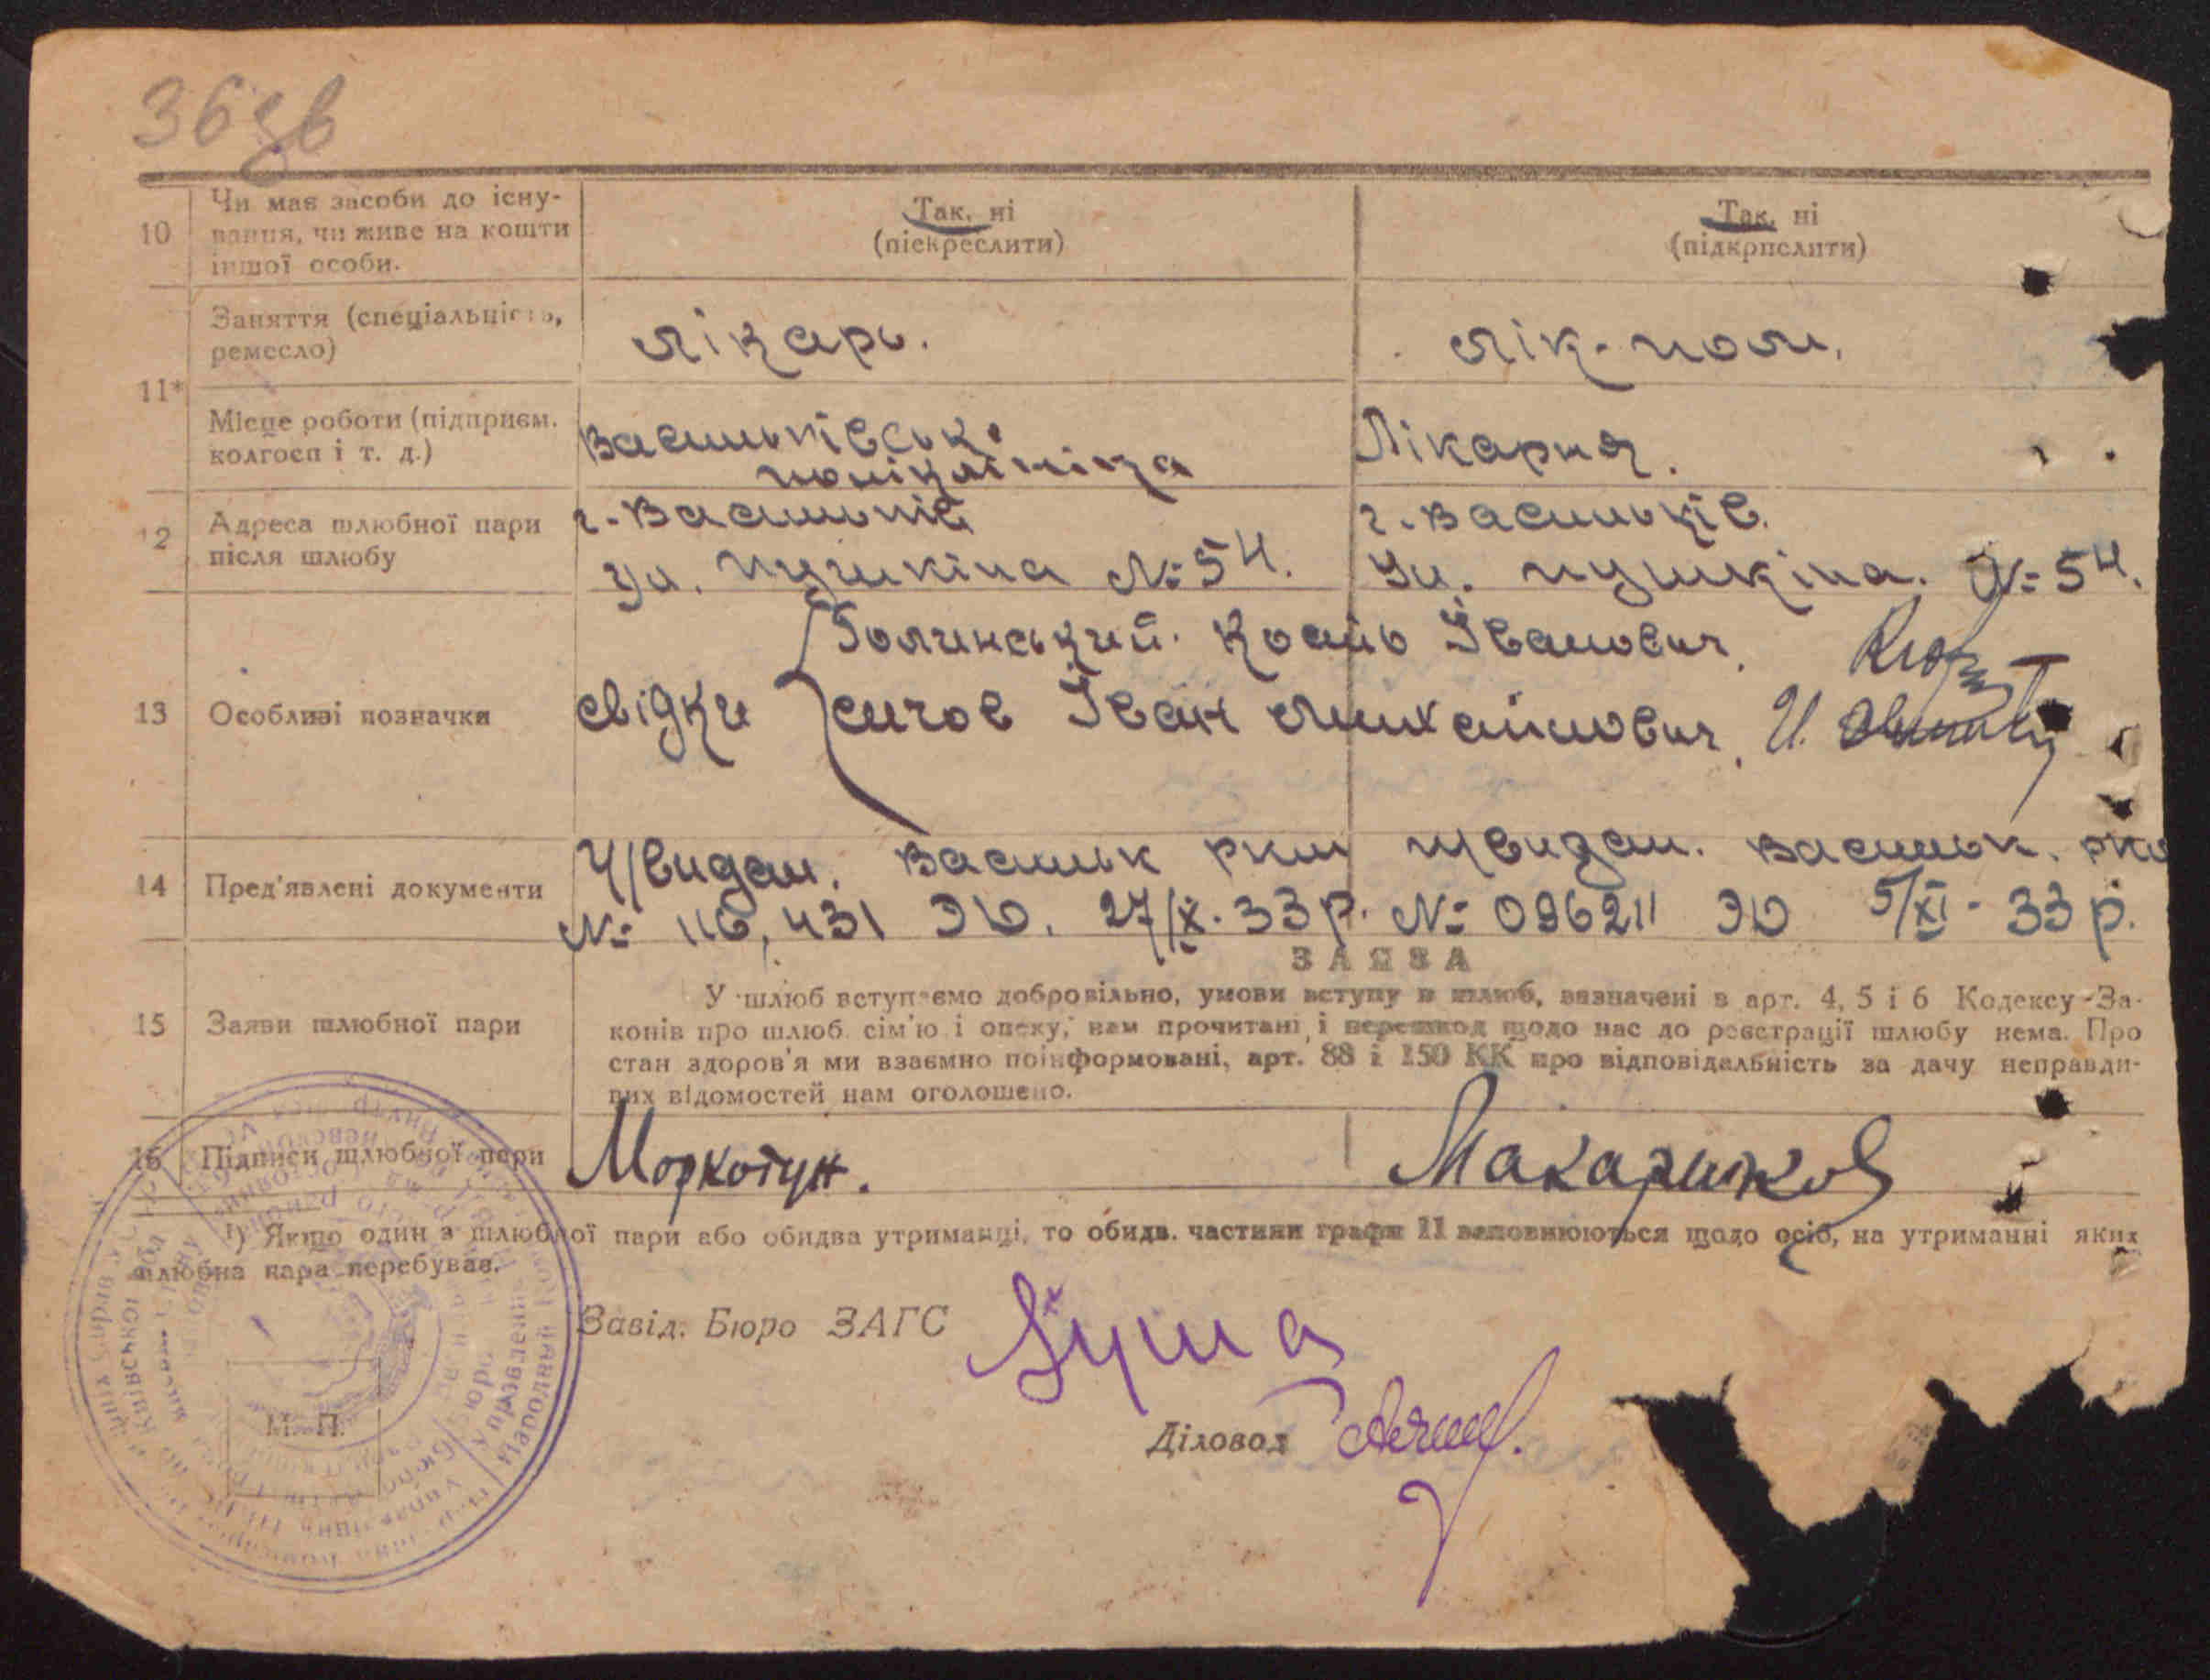 36 зв
10 Чи має засоби до існу- Так, ні Так, ні
вання, чи живе на кошти (піекреслити) (підкрпслити)
іншої особи.
Заняття (спеціальність, лікарь. лік-пом.
ремесло)
11*
Місце роботи (підприєм. Васильківськ. Лікарня.
колгосп і т. д.) поліклініка
12 Адреса шлюбної пари г. Васильків г. Васильків.
після шлюбу Ул. Пушкіна № 54. Ул. Пушкіна. № 54.
Голинський. Кость Іванович.
13 Особливі позначки свідки сичов Іван Михайлович.
14 Пред'явлені документи Васильк ркм Васильк. рк
№ 116,431 ЭЮ. 27/IX-33 р. № 096211 ЭЮ 5/XI-33 р.
ЗАЯВА
У шлюб вступаємо добровільно, умови вступу в шлюб, зазначені в арт. 4, 5 і 6 Кодексу За-
15 Заяви шлюбної пари конів про шлюб сім'ю і опеку, нам прочитані і перешкод щодо нас до реєстрації шлюбу нема. Про
стан здоров'я ми взаємно поінформовані, арт. 88 і 150 КК про відповідальність за дачу неправди-
вих відомостей нам оголошено.
16 Підписи шлюбної пари Моркотун. Макаришков
¹) Якщо один з шлюбної пари або обидва утриманці, то обидв. частини графи 11 заповнюються щодо осіб, на утриманні яких
шлюбна пара перебуває.
Завід. Бюро ЗАГС
Діловод
М. П.